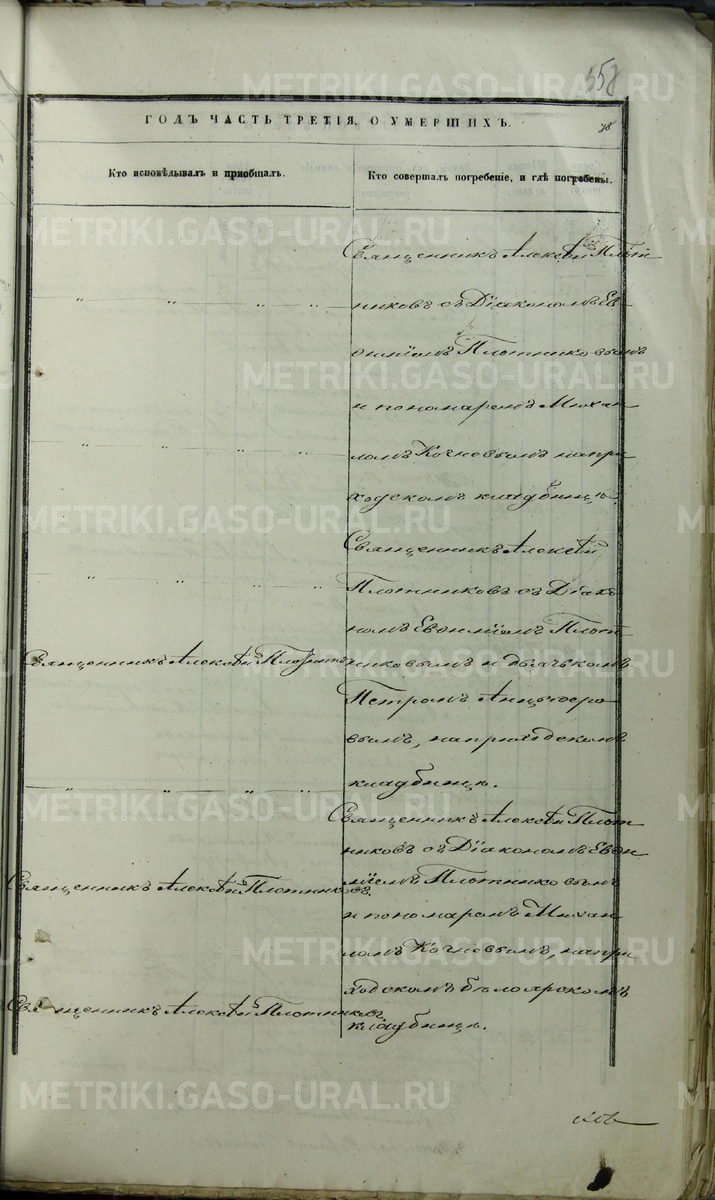 558
78
ГОДЪ ЧАСТЬ ТРЕТІЯ, О УМЕРШИХЪ.
Кто исповѣдывалъ и пріобщалъ.
Кто совершалъ погребеніе, и гдѣ погребены.
Священникъ Алексѣй Плот
никовъ съ Діакономъ Ев
ѳиміемъ Плотниковымъ
и пономаремъ Михаи
ломъ Кочневымъ на при
ходскомъ кладбищѣ.
Священникъ Алексѣй
Плотниковъ съ Діако
номъ Евѳиміемъ Плот
никовымъ и дьячькомъ
Петромъ
вымъ, на приходскомъ
кладбищѣ.
Священникъ Алексѣй Плот
никовъ съ Діакономъ Евѳи
міемъ Плотниковымъ
и пономаремъ Михаи
ломъ Кочневымъ, на при
ходскомъ Бѣлоярскомъ
кладбищѣ.
Священникъ Алексѣй Плотников
Священникъ Алексѣй Плотниковъ
Священникъ Алексѣй Плотниковъ
METRIKI.GASO-URAL.RU